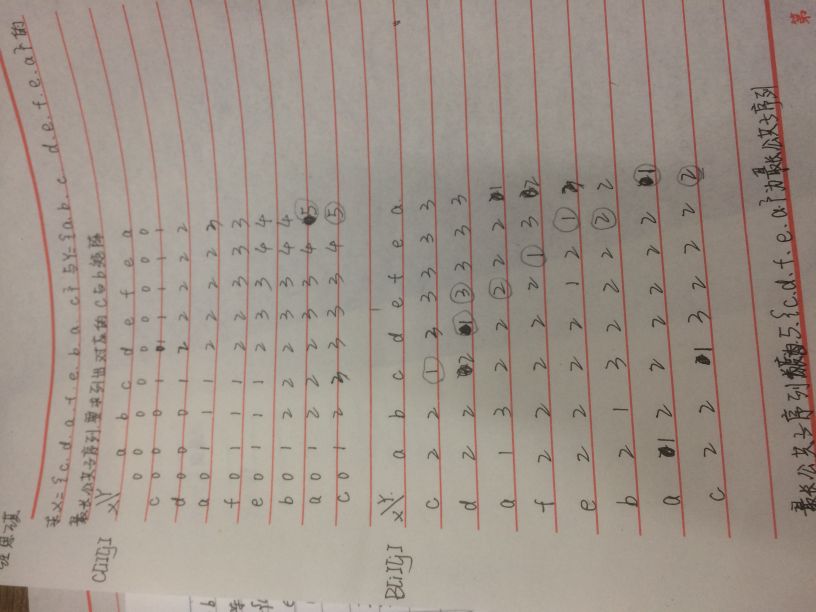 求X={c.d.a.f.e.b.a.c}与Y={a.b.c.d.e.f.e.a}的
最长公共子序列.要求列出对应的C与b矩阵
C[i][j]
X\Y a b c d e f e a
0 0 0 0 0 0 0 0 0
c 0 0 0 1 1 1 1 1 1
d 0 0 0 1 2 2 2 2 2
a 0 1 1 1 2 2 2 2 3
f 0 1 1 1 2 2 3 3 3
e 0 1 1 1 2 3 3 4 4
b 0 1 2 2 2 3 3 4 4
a 0 1 2 2 2 3 3 4 5
c 0 1 2 3 3 3 3 4 5
B[i][j]
X\Y a b c d e f e a
c 2 2 1 3 3 3 3 3
d 2 2 2 1 3 3 3 3
a 1 3 2 2 2 2 2 1
f 2 2 2 2 2 1 3 2
e 2 2 2 2 1 2 1 3
b 2 1 3 2 2 2 2 2
a 1 2 2 2 2 2 2 1
c 2 2 1 3 2 2 2 2
最长公共子序列为5.{c.d.f.e.a}为最长公共子序列
第